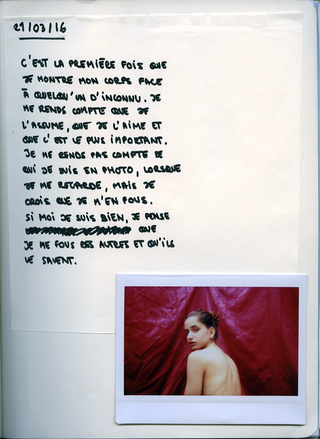 29/03/16
C'EST LA PREMIÈRE FOIS QUE
JE MONTRE MON CORPS FACE
À QUELQU'UN D'INCONNU. JE
ME RENDS COMPTE QUE JE
L'ASSUME, QUE JE L'AIME ET
QUE C'EST LE PLUS IMPORTANT.
JE ME RENDS PAS COMPTE DE
QUI JE SUIS EN PHOTO, LORSQUE
JE ME REGARDE, MAIS JE
CROIS QUE JE M'EN FOUS.
SI MOI JE SUIS BIEN, JE PENSE
QUE
JE ME FOUS DES AUTRES ET QU'ILS
LE SAVENT.